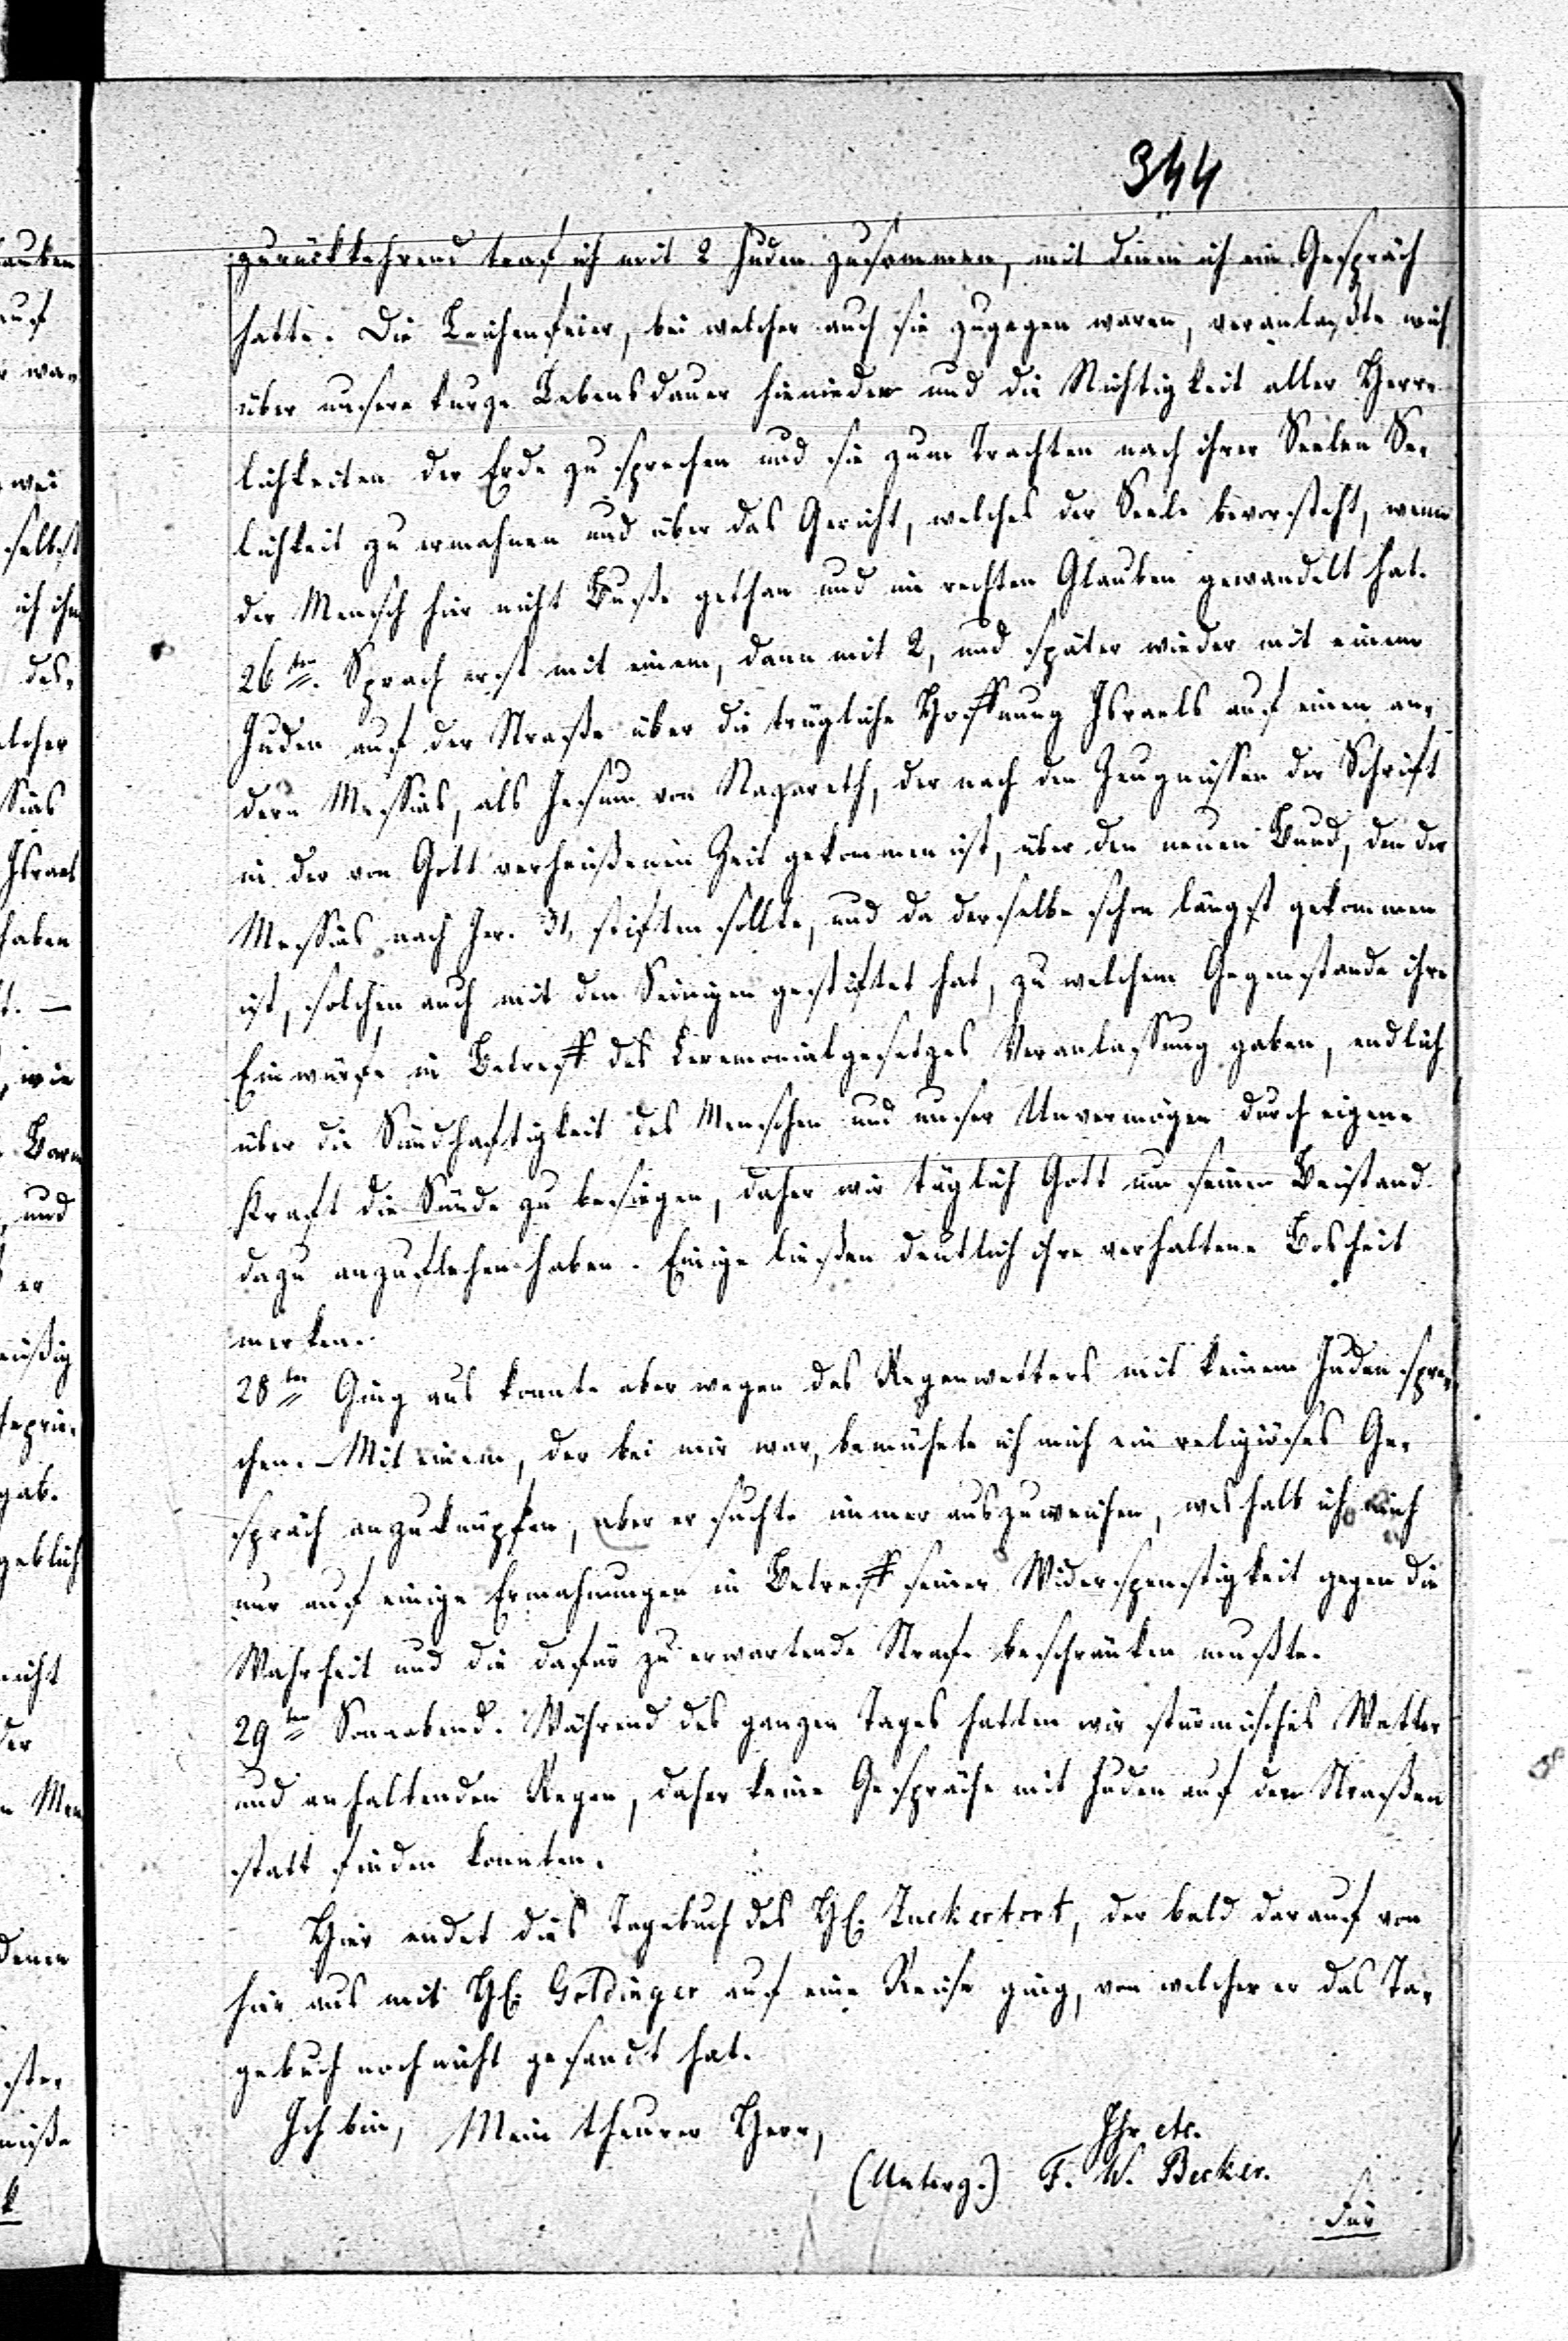 344
zurückkehrend traf ich mit 2 Juden zusammen, mit denen ich ein Gespräch
hatte. Die Leichenfeier, bei welcher auch sie zugegen waren, veranlaßte mich
über unsere kurze Lebensdauer hienieden und die Nichtigkeit aller Herr-
lichkeiten der Erde zu sprechen und sie zum Trachten nach ihrer Seelen Se-
lichkeit zu ermahnen und über das Gericht, welches der Seele bevorsteht, wenn
der Mensch hier nicht Buße gethan und im rechten Glauben gewandelt hat.
26ten. Sprach erst mit einem, dann mit 2, und später wieder mit einem
Juden auf der Straße über die trügliche Hoffnung Israels auf einen an-
dern Messias, als Jesum von Nazareth, der nach den Zeugnissen der Schrift
in der von Gott verheißenen Zeit gekommen ist, über den neuen Bund, den der
Messias nach Jer. 31, stiften sollte, und da derselbe schon längst gekommen
ist, solchen auch mit den Seinigen gestiftet hat, zu welchem Gegenstande ihre
Einwürfe in Betreff des Ceremonialgesetzes Veranlassung gaben, endlich
über die Sündhaftigkeit des Menschen und unser Unvermögen durch eigene
Kraft die Sünde zu besiegen, daher wir täglich Gott um seinen Beistand
dazu anzuflehen haben. Einige ließen deutlich ihre verhaltene Bosheit
merken.
28ten Ging aus konnte aber wegen des Regenwetters mit keinem Juden spre-
chen. - Mit einem, der bei mir war, bemühete ich mich ein religiöses Ge-
spräch anzuknüpfen, aber er suchte immer auszuweichen, weshalb ich mich
nur auf einige Ermahnungen in Betreff seiner Widerspenstigkeit gegen die
Wahrheit und die dafür zu erwartende Strafe beschränken mußte.
29ten Sonnabend. Während des ganzen Tages hatten wir stürmisches Wetter
und anhaltenden Regen, daher keine Gespräche mit Juden auf den Straßen
statt finden konnten.
Hier endet dies Tagebuch des H. Zuckertort, der bald darauf von
hier aus mit H. Goldinger auf eine Reise ging, von welcher er das Ta-
gebuch noch nicht gesandt hat.
Ich bin, Mein theurer Herr,
Ihr etc.
(Unterz.) F. W. Becker.
Für